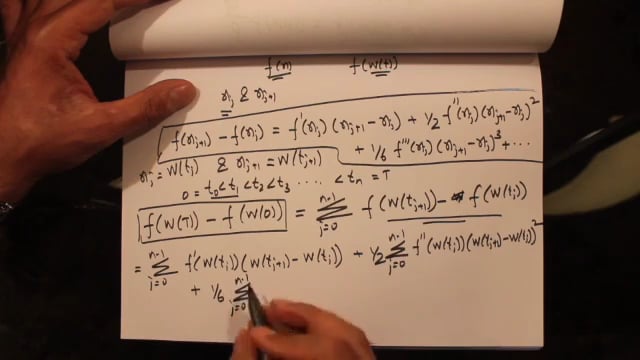 f(x) f(W(t))
xj & xj+1
f(xj+1) - f(xj) = f'(xj) (xj+1 - xj) + 1/2 f''(xj) (xj+1 - xj)^2
+ 1/6 f'''(xj) (xj+1 - xj)^3 + ...
xj = W(tj) & xj+1 = W(tj+1)
0 = t0 < t1 < t2 < t3 .... < tn = T
f(W(T)) - f(W(0)) = Σ_{j=0}^{n-1} f(W(tj+1)) - f(W(tj))
= Σ_{j=0}^{n-1} f'(W(tj)) (W(tj+1) - W(tj)) + 1/2 Σ_{j=0}^{n-1} f''(W(tj)) (W(tj+1) - W(tj))^2
+ 1/6 Σ_{j=0}^{n-1}